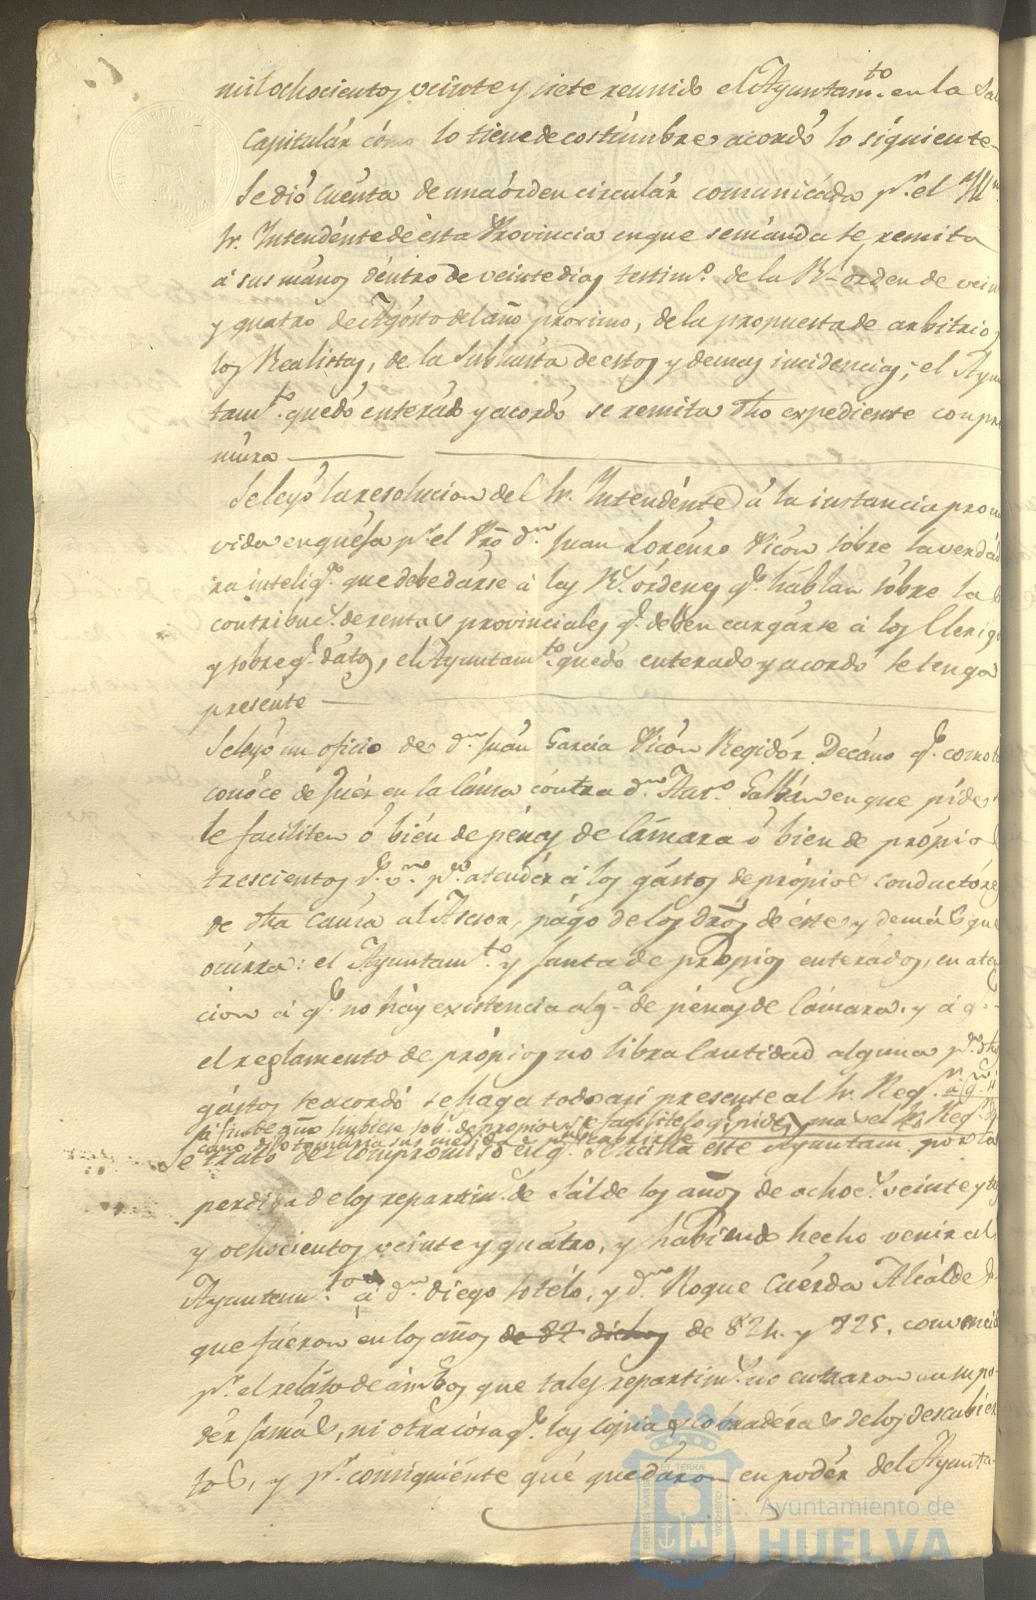 mil ochocientos veinte y siete reunido el Ayuntam.to en la Sal
Capitulár cómo lo tiene de costúmbre acordó lo síguiente
Se dió cuénta de una órden circulár comunicáda p.r el
Sr. Intendénte de ésta Província en que se mánda se remita
á sus mános déntro de veinte dias testim.o de la Rl órden de vein
y quatro de Agósto del año procsimo, de la propuesta de arbitrios
los Realistas, de la Subasta de estos y demas incidencias; el Ayun
tam.to quedó enterádo y acordó se remita dho expediente con pre
múra
Se leyó la resolucion del Sr. Intendénte á la instancia promo
vida en quéja p.r el Pro d.n Juan Lorénzo Vicón sóbre la verdad
ra intelig.a que debe dárse á las Rs órdenes q.e háblan sóbre la
contribuc.n de rentas provinciales q.e deben cargárse á los Clerigos
y sobre q.e dátos, el Ayuntam.to quedó enterado y acordó se tenga
presénte
Se leyó un oficio de d.n Juán García Vicón Regidór Decáno q.e como tal
conóce de Juéz en la cáusa cóntra d.n en que píde
le faciliten ó bién de pénas de Cámara ó bien de própios
trescientos r.s v.n p.a atendér á los gástos de própios conductóres
de dha caúsa al Asesor, págo de los dros de éste y demás que
ocúrra: el Ayuntam.to y Junta de propios enterados, en aten
cion á q.e no háy existencia alg.a de pénas de Cámara, y á q.e
el reglamento de própios no libra Cantidad alguna p.a dhos
gástos se acordó se haga todo asi presente al Sr. Reg.r
Se trató del compromiso en q.e se halla este Ayuntam.to por la
perdida de los repartim.s de Sál de los años de ochoc.s veinte y tres
y ochocientos veinte y quátro, y habiendo hecho venir al
Ayuntam.to á d.n Diego Sotélo, y d.n Roque Cuérda Alcálde
que fuéron en los años de 82 dichos de 824. y 825, convencid
p.r el reláto de ámbos que tales repartim.s no entraron en su po-
dér jamás, ni otra cósa q.e las cobradéras de los descubier
tos, y p.r consiguiénte qué quedáron en podér del Ayunta-
PORTUS MARIS ET TERRÆ CUSTODIA
Ayuntamiento de
HUELVA